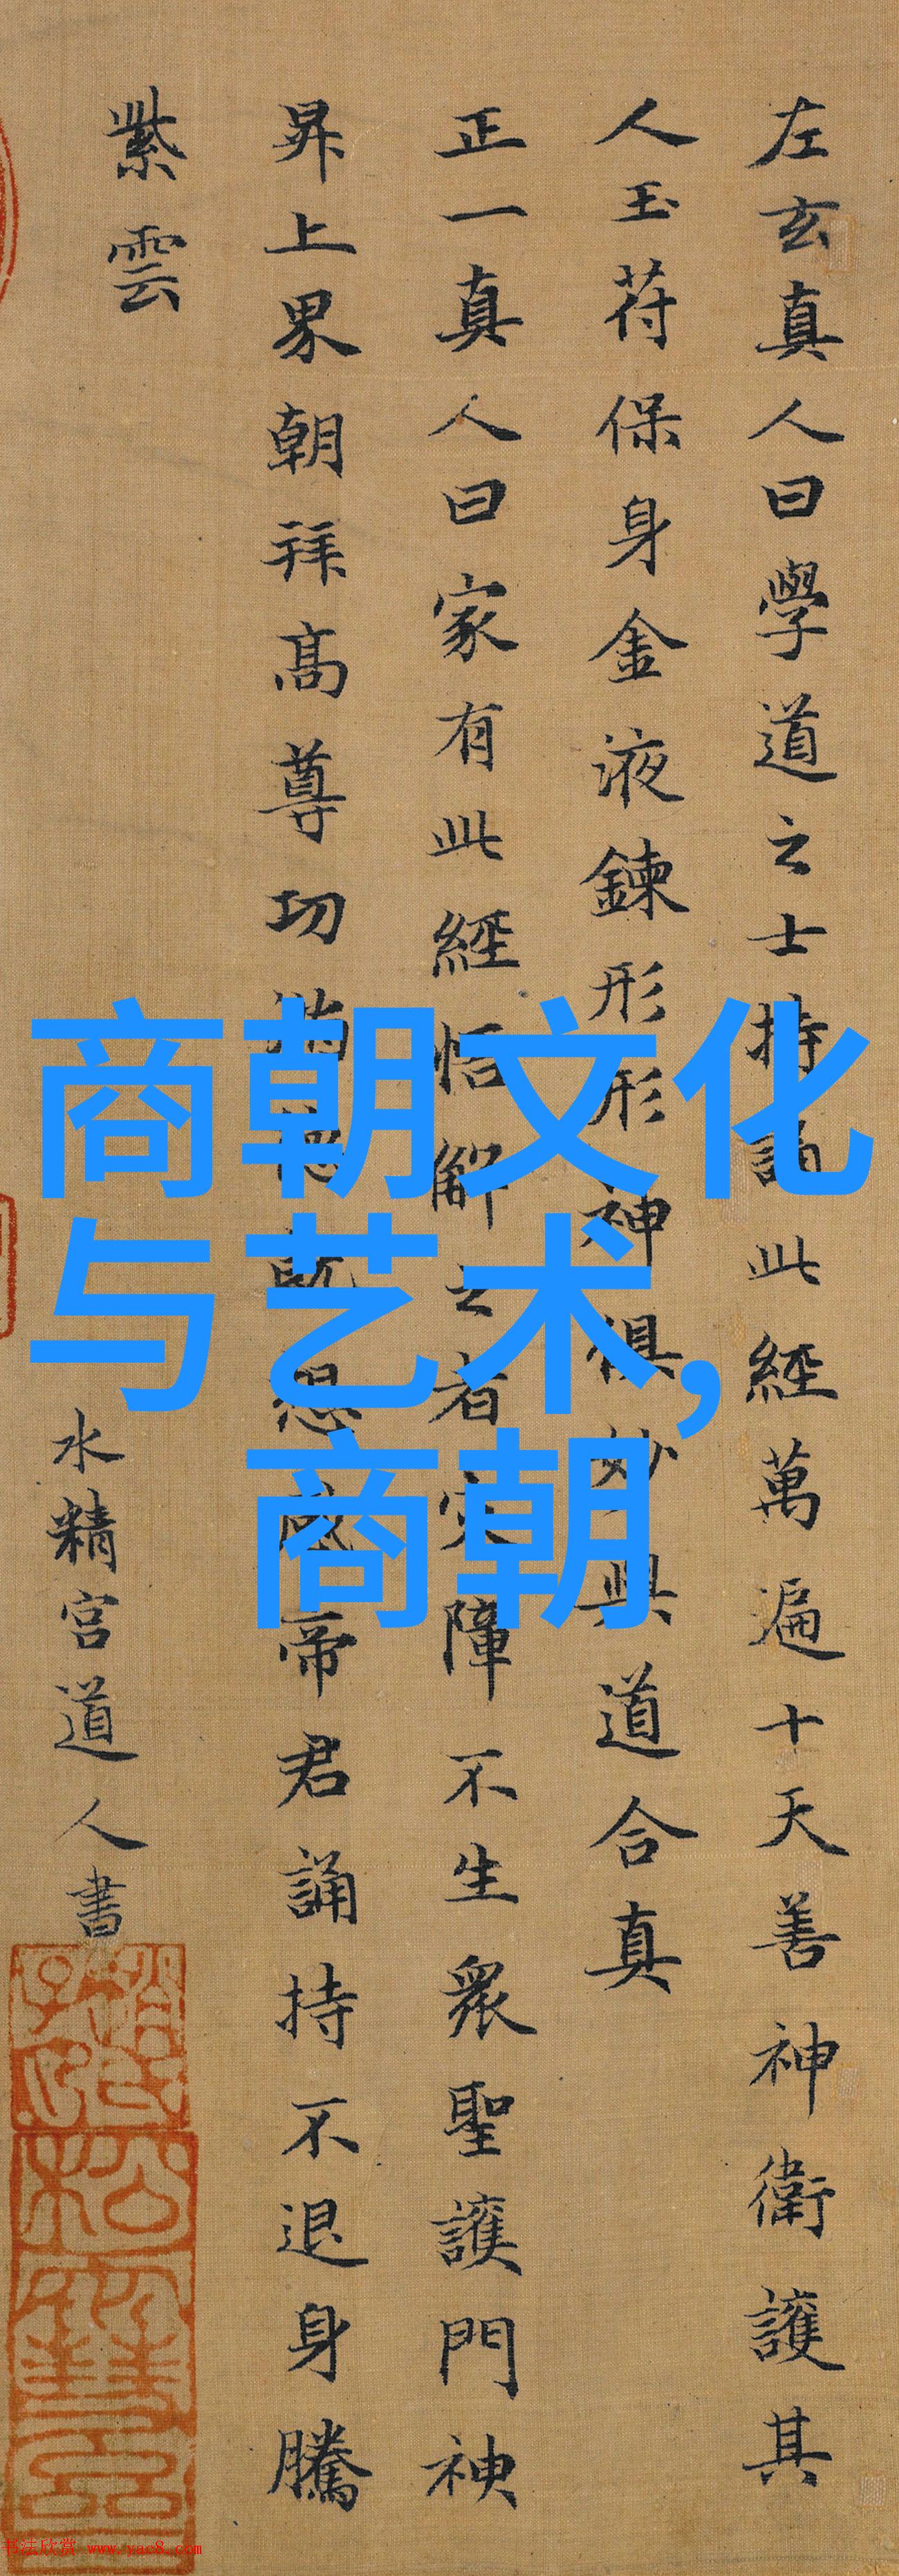 左玄真人曰學道之士持誦此經萬遍十天善神衛護其
人玉苻保身金液鍊形形神俱妙與道合真
正一真人曰家有此經悟解之者災障不生衆聖護門神
昇上界朝拜高尊功滿德就想感帝君誦持不退身騰
紫雲
水精宮道人書
商朝文化
与艺术,
商朝
书法欣赏 www.yac8.com